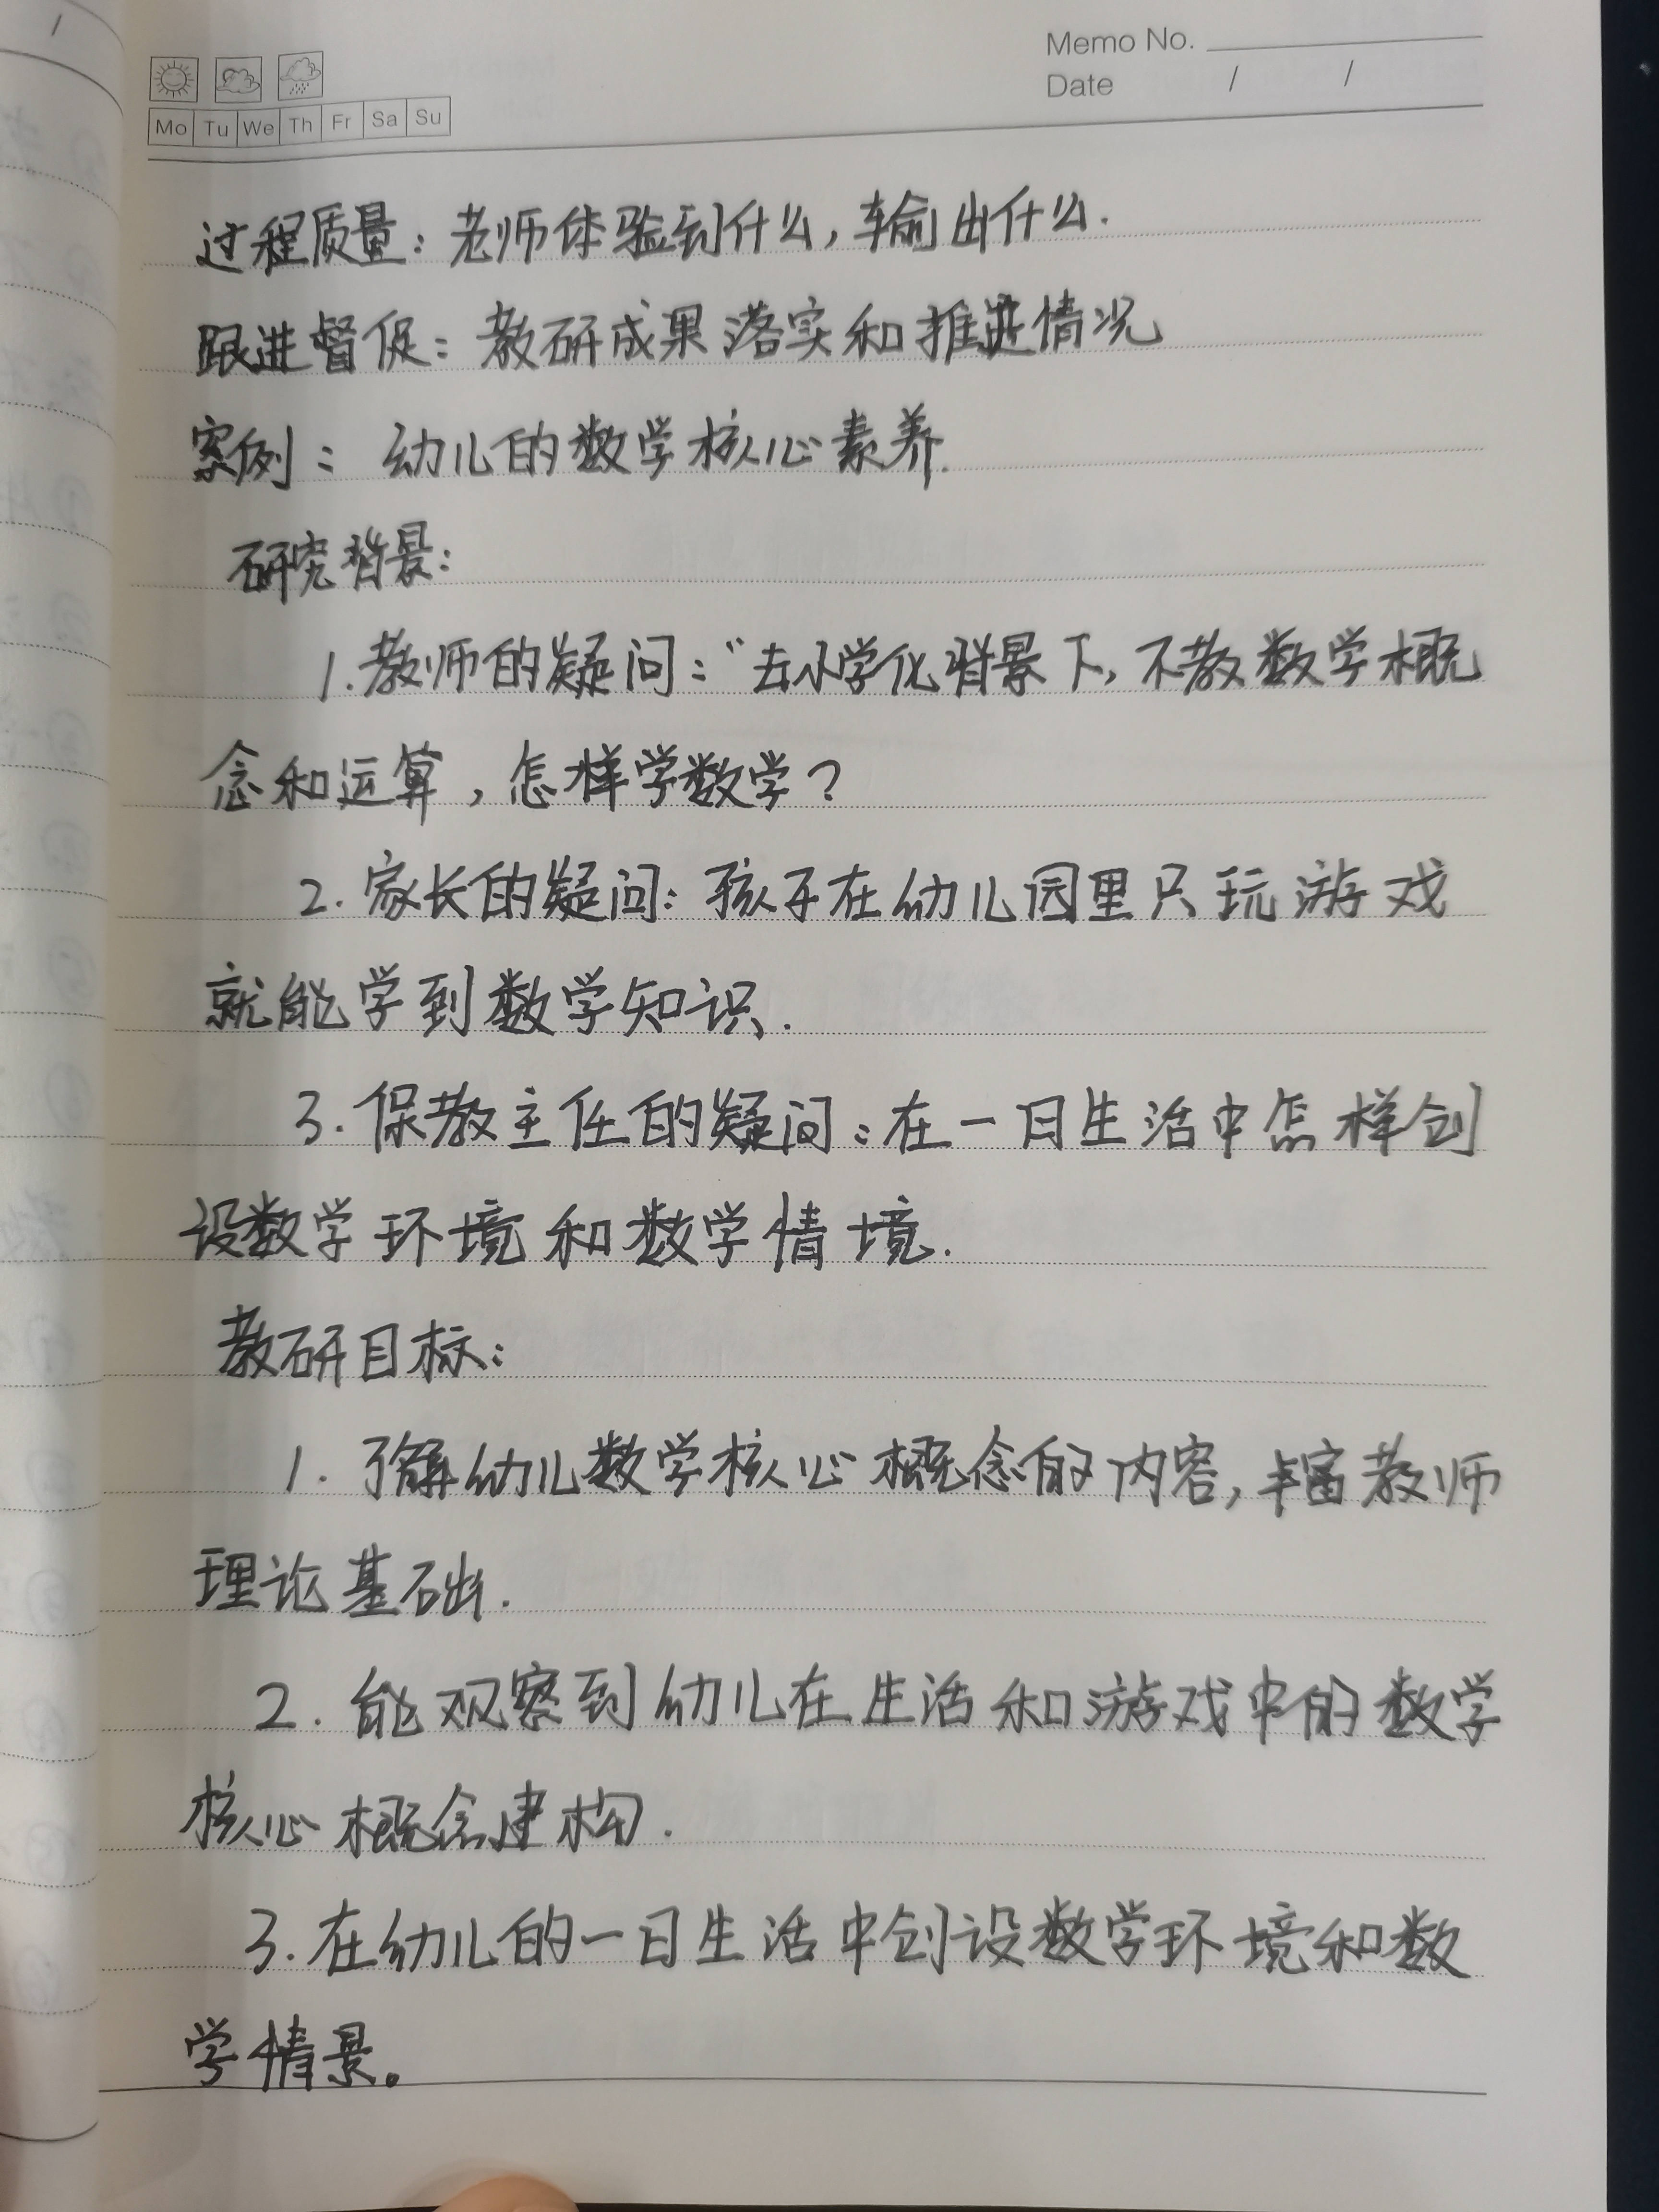 Memo No.
Date / /
Mo Tu We Th Fr Sa Su
过程质量：老师体验到什么，输出什么.
跟进督促：教研成果落实和推进情况
案例：幼儿的数学核心素养.
研究背景：
1.教师的疑问：“去小学化背景下，不教数学概
念和运算，怎样学数学？
2.家长的疑问：孩子在幼儿园里只玩游戏
就能学到数学知识.
3.保教主任的疑问：在一日生活中怎样创
设数学环境和数学情境.
教研目标：
1.了解幼儿数学核心概念的内容，丰富教师
理论基础.
2.能观察到幼儿在生活和游戏中的数学
核心概念建构.
3.在幼儿的一日生活中创设数学环境和数
学情景。